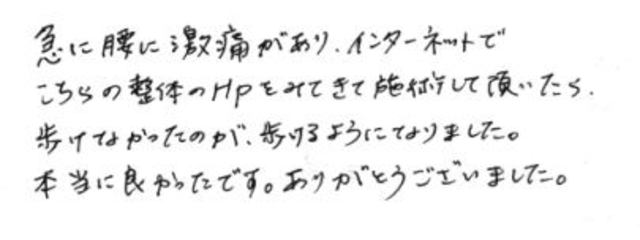 急に腰に激痛があり、インターネットで
こちらの整体のHPをみてきて施術して頂いたら、
歩けなかったのが、歩けるようになりました。
本当に良かったです。ありがとうございました。